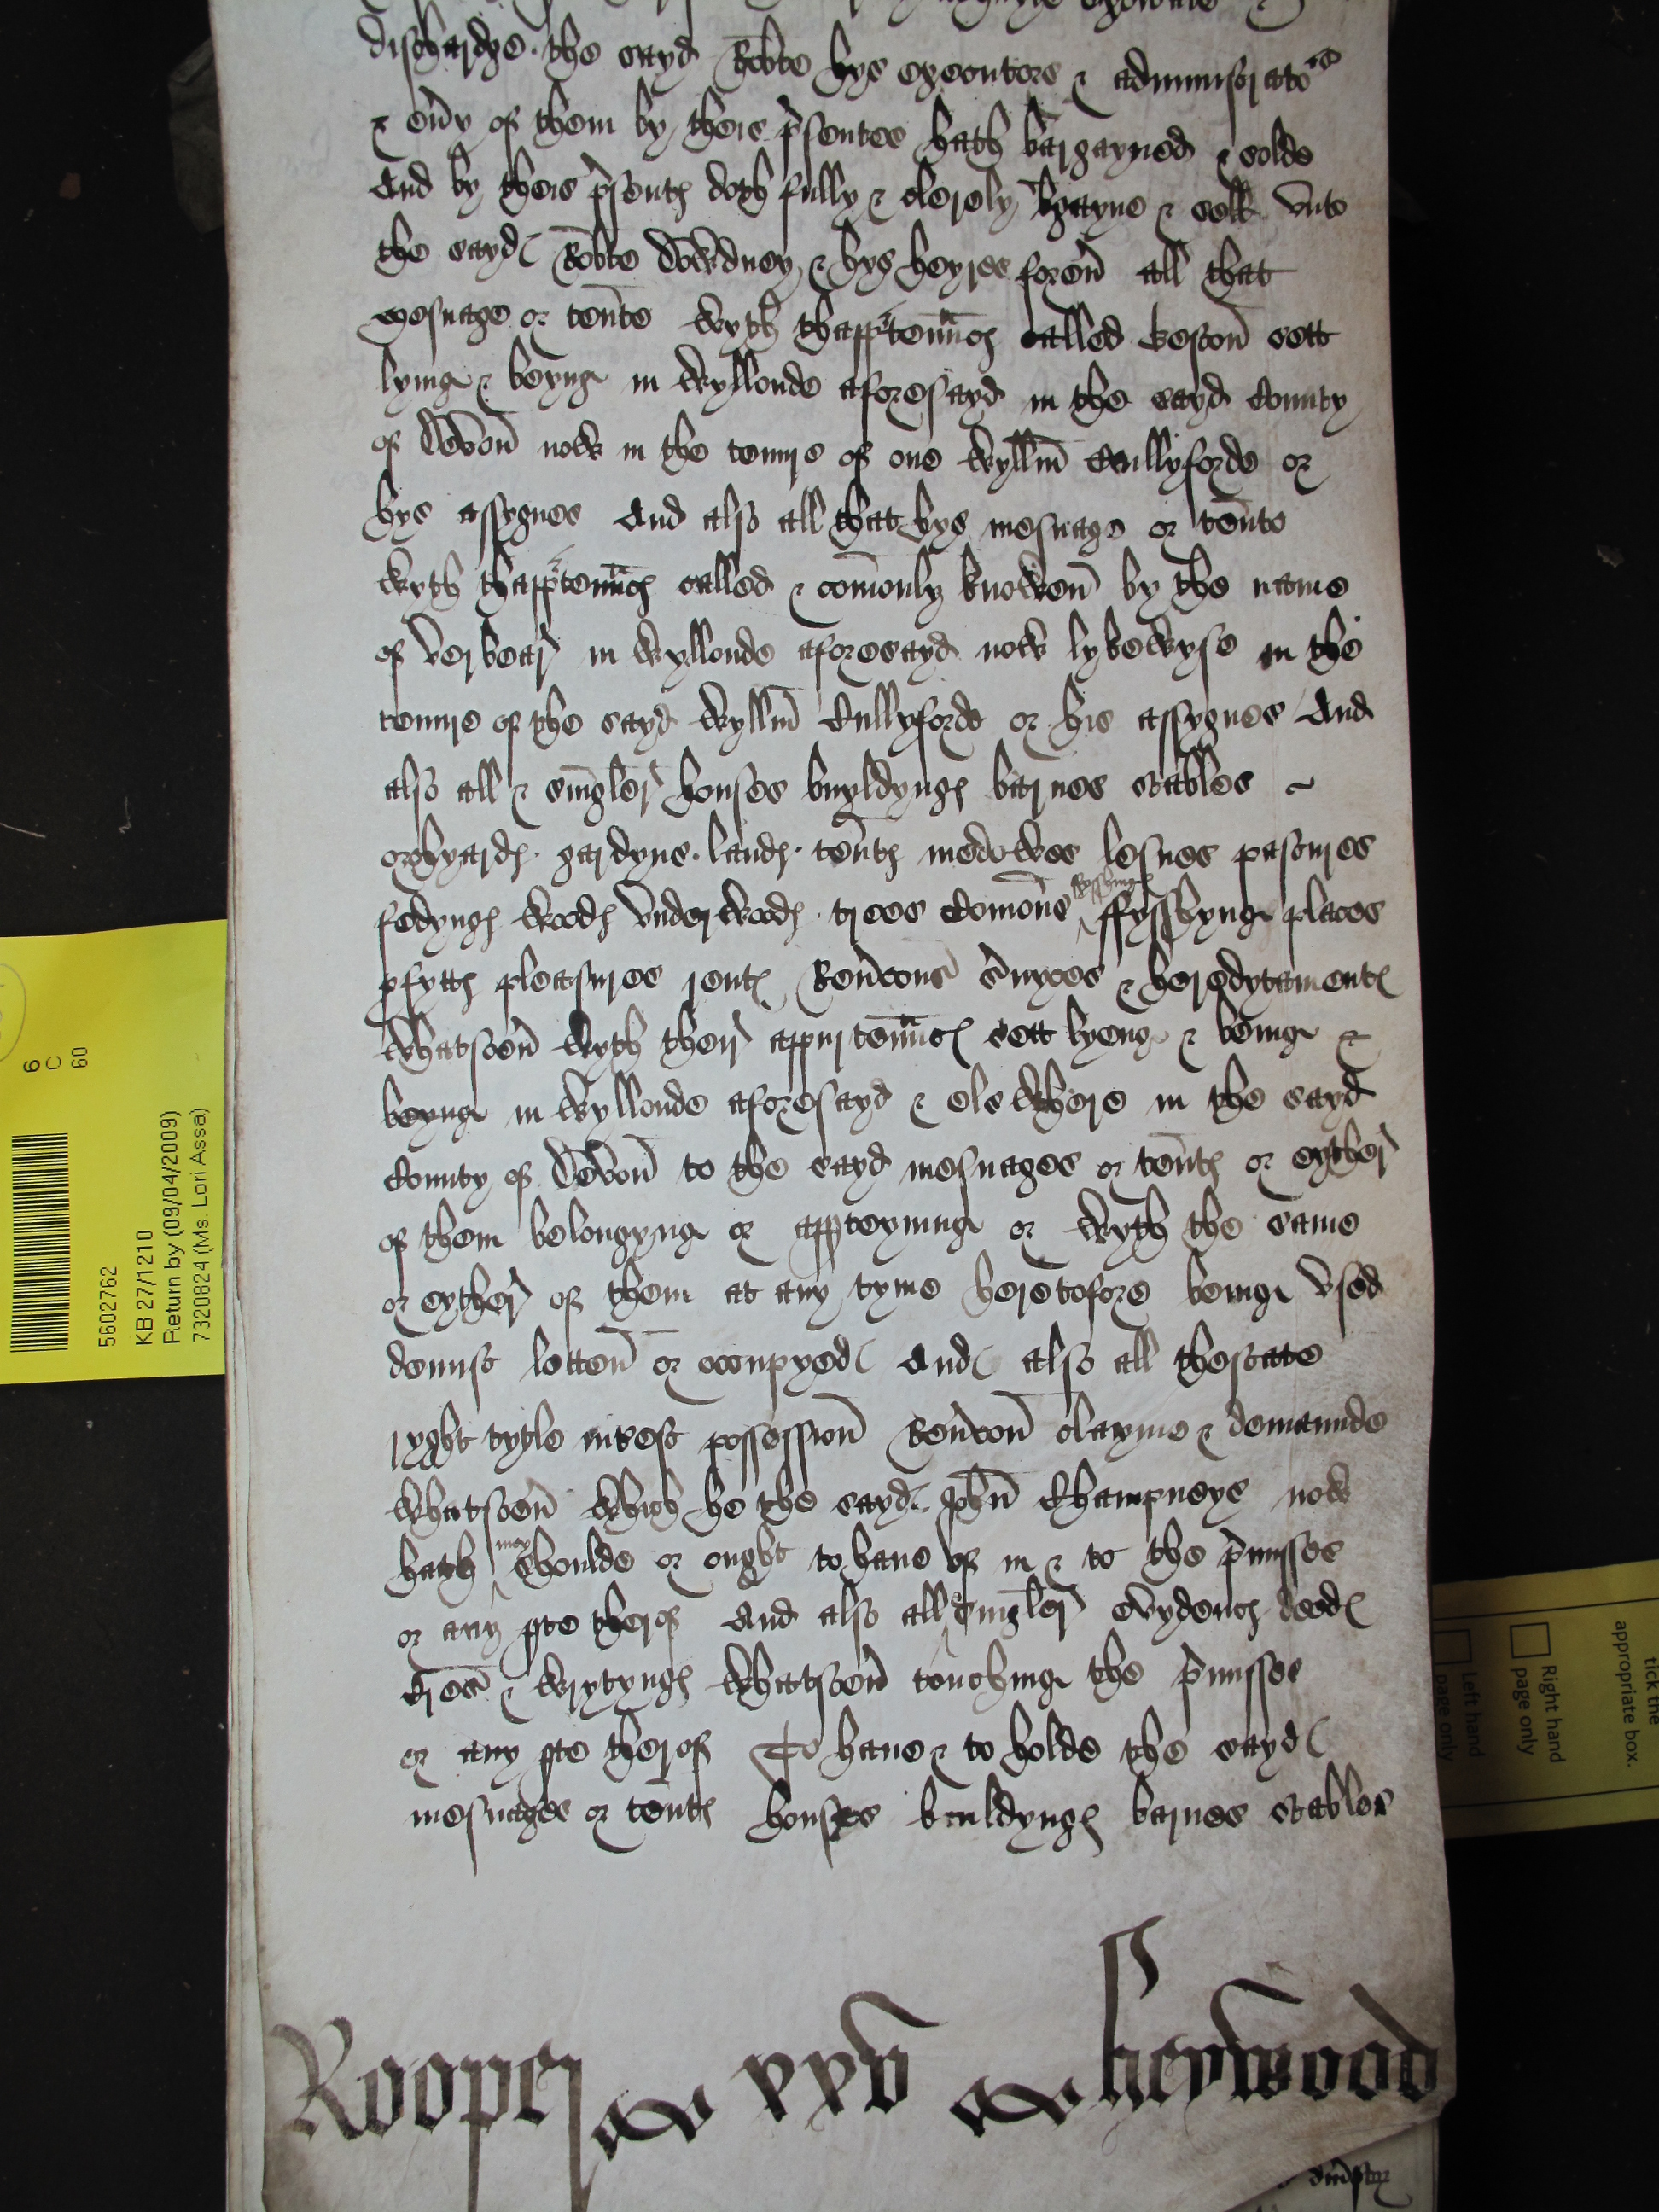 dischardge the sayd Robte hys executors & administrators
& eury of them by theis psentes hath bargayned & solde
And by theis psents doth fully & clerely bgayne & sell vnto
the sayd Robte Dowdney & hys heyres foreu all that
mesuage or tente wyth thapptenncs called Keston sett
lying & beyng in Wyllonde aforesayd in the sayd County
of Devon now in the tenure of one Wyllm Cullyforde or
hys assygnes And also all that hys mesuage or tente
wyth thapptennacs called & comonly knowen by the name
of Verbear in Wyllonde aforesayd now lykewyse in the
tenure of the sayd Wyllm Cullyforde or his assygnes And
also all & singler houses buyldyngs barnes stables
orchyards gardyns lands tents medowes lesues pastures
fedyngs woods vnderwoods trees Comons fysshing ffysshyng places
pfytts pleasures rents Reucons suyces & heredytaments
whatsoeu wyth their appurtennacs sett lyeng & being &
beyng in Wyllonde aforesayd & elswhere in the sayd
County of Devon to the sayd mesuages or tents or eyther
of them belongyng or appteynyng or wyth the same
or eyther of them at any tyme heretofore being vsed
demist letten or occupyed And also all thestate
ryght tytle intrest possession Reucon clayme & demaunde
whatsoeu which he the sayd John Champneys now
hath may shoulde or ought to haue of in & to the pmisses
or any pte therof And also all & singler evydencs deeds
Cres & wrytyngs whatsoeu touching the pmisses
or any pte therof To haue & to holde the sayd
mesuages or tents houses buildyngs barnes stables
Rooper & xxv & heywood
5602762
KB 27/1210
Return by (09/04/2009)
7320824 (Ms. Lori Assa)
6
C
60
tick the
appropriate box.
Right hand
page only
Left hand
page only